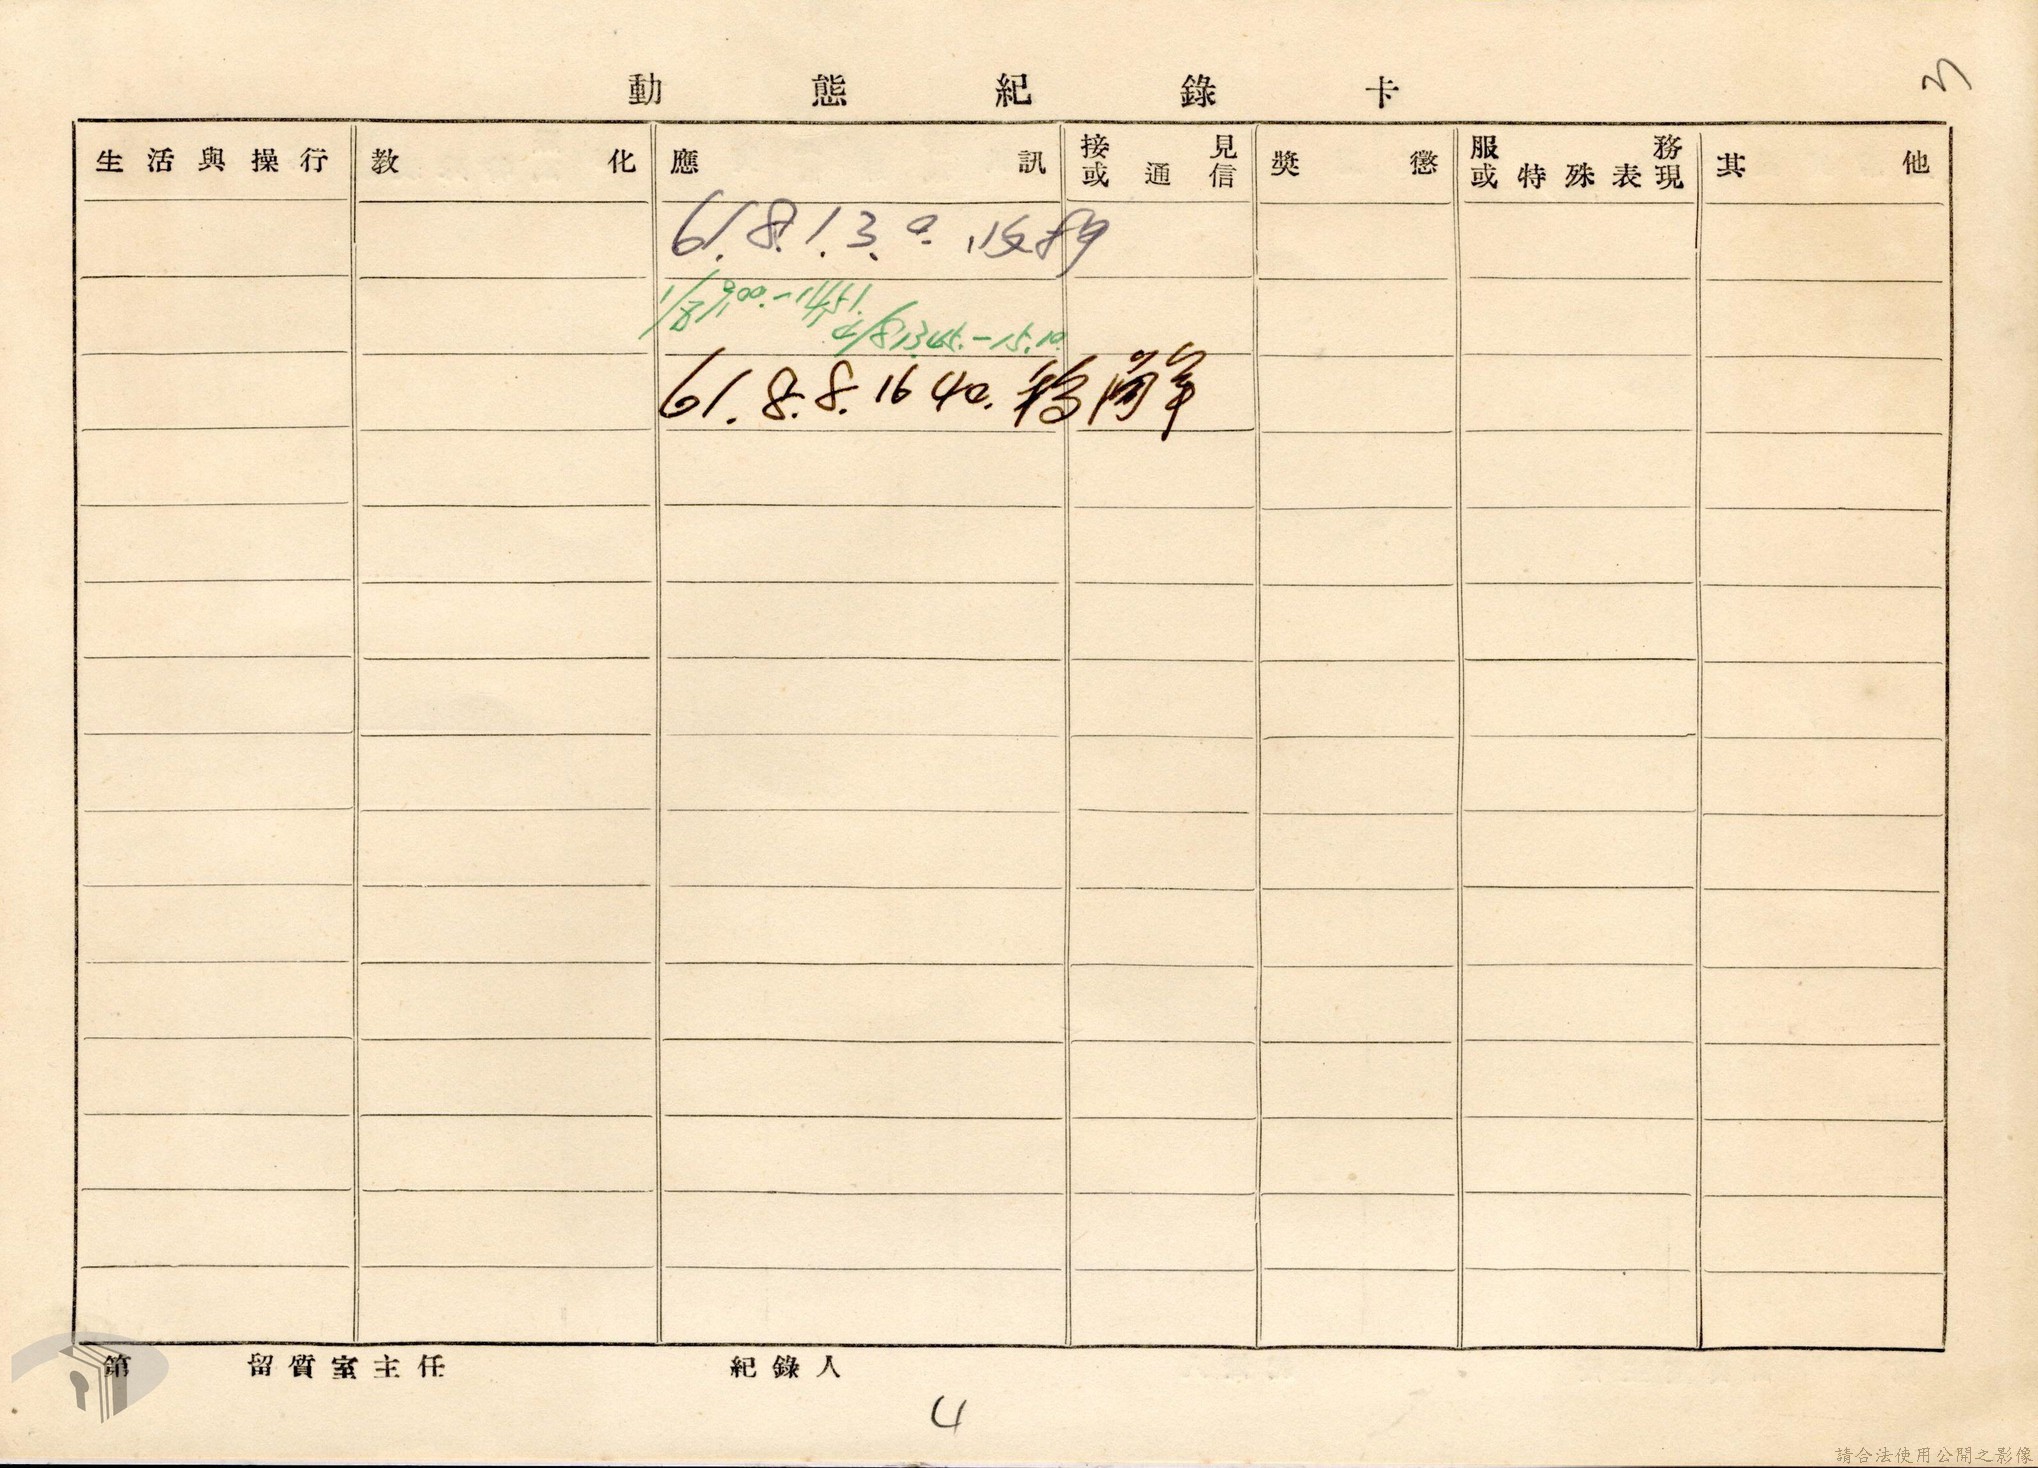 3
動態紀錄卡
生活與操行 教化 應訊 接見或通信 獎懲 服務或特殊表現 其他
61.8.1.3.0. 收押
1/8 1100-11
4/8 1345.-15.10.
61.8.8.16 40.
第 留質室主任 紀錄人
4
請合法使用公開之影像